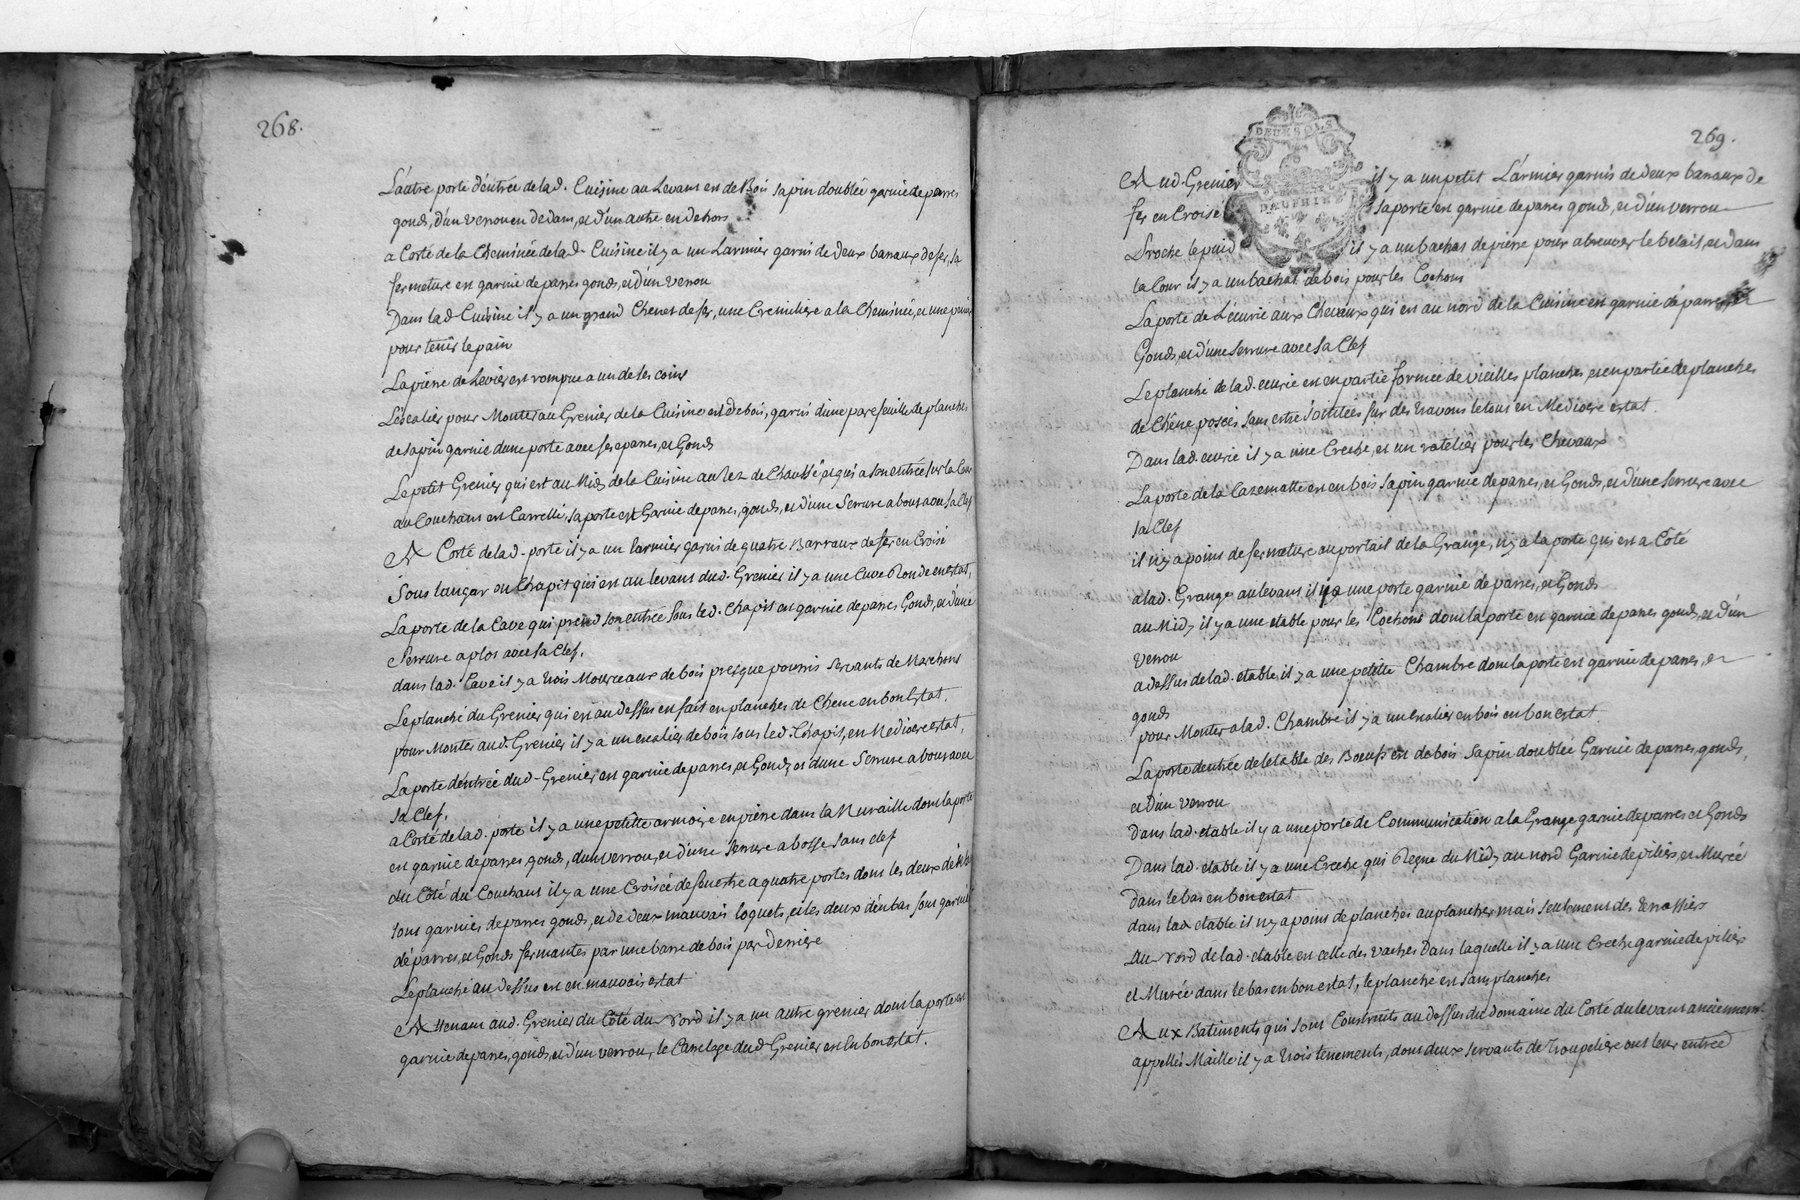 268.
L'autre porte d'entrée de lad. Cuisine au Levant est de Bois sapin doublée garnie de parres
gonds, d'un verrou en dedans, et d'un autre en dehors
a Corté de la Cheminée de lad. Cuisine il y a un Larmier garni de deux barraux de fer, sa
fermeture est garnie de parres gonds, et d'un verrou
Dans lad. Cuisine il y a un grand Chenet de fer, une Cremiliere a la Cheminée, et une
pour tenir le pain
La pierre de Levier est rompue a un de ses coins
L'escalier pour Monter au Grenier de la Cuisine est de bois, garni d'une parefeuille de planches
de sapin garnie d'une porte avec ses parres, et Gonds
Le petit Grenier qui est au Midy de la Cuisine au Rez de Chaussé et qui a son entrée sur la Cour
au Couchant est Carrelli, sa porte est Garnie de parres, gonds, et d'une Serrure a bout avec sa Clef
A Corté de lad. porte il y a un larmier garni de quatre Barraux de fer en Croisé
Sous l'ançar ou Chapit qui est au levant dud. Grenier il y a une Cuve Ronde en estat,
La porte de la Cave qui prend son entrée sous led. Chapit est garnie de parres Gonds, et d'une
Serrure a plot avec sa Clef,
dans lad. Cave il y a trois Mourceaux de bois presque pourris servants de Marchons
Le planché du Grenier qui est au dessus en fait en planches de Chene en bon Estat,
pour Monter aud. Grenier il y a un escalier de bois sous led. Chapit, en Mediocre estat,
La porte d'entrée dud. Grenier est garnie de parres, et Gonds, et d'une Serrure a bout avec
sa Clef,
a Corté de lad. porte il y a une petitte armoire en pierre dans la Muraille dont la porte
est garnie de parres, gonds, d'un verrou, et d'une Serrure a bosse sans clef
du Côté du Couchant il y a une Croisée de fenestre a quatre portes dont les deux
sont garnies de parres gonds, et de deux mauvais loquets, et les deux d'enbas sont garnies
de parres, et Gonds fermantes par une barre de bois par derriere
Le planché au dessus est en mauvois estat
Attenant aud. Grenier du Côté du Nord il y a un autre grenier dont la porte est
garnie de parres, gonds, et d'un verrou, le Carrelage dud. Grenier est en bon estat.
269.
DEUX SOLS
DAUPHINE
Aud. Grenier il y a un petit Larmier garni de deux barraux de
fer en Croisé sa porte est garnie de parres gonds, et d'un verrou
Proche le puid il y a un bachat de pierre pour abreuver le betail, et dans
la Cour il y a un bachat de bois pour les Cochons
La porte de L'écurie aux Chevaux qui est au nord de la Cuisine est garnie de parres
Gonds, et d'une Serrure avec sa Clef
Le planché de lad. ecurie est en partie formée de vieilles planches, et en partie de planches
de Chêne posées sans estre sur des travons le tout en Mediocre estat.
Dans lad. ecurie il y a une Creche, et un ratelier pour les Chevaux
La porte de la Cazematte est en bois sapin garnie de parres, et Gonds, et d'une serrure avec
sa Clef
il n'y a point de fermeture au portail de la Grange, n'y a la porte qui est a Coté
a lad. Grange au levant il y a une porte garnie de parres, et Gonds
au Midy il y a une etable pour les Cochons dont la porte est garnie de parres gonds, et d'un
verrou
a dessus de lad. etable, il y a une petitte Chambre dont la porte est garnie de parres, et
gonds
pour Monter a lad. Chambre il y a un escalier en bois en bon estat.
La porte d'entrée de l'etable des Boeufs est de bois Sapin doublée Garnie de parres, gonds,
et d'un verrou
Dans lad. etable il y a une porte de Communication a la Grange garnie de parres et Gonds
Dans lad. etable il y a une Creche qui Regne du Midy au nord Garnie de piliers, et Murée
Dans le bas en bon estat
dans lad. etable il n'y a point de planches au plancher mais seulement des
Au Nord de lad. etable est celle des vaches Dans laquelle il y a une Creche garnie de piliers
et Murée dans le bas en bon estat, le planché est sans planches
Aux Batiments qui sont Construits au dessus du domaine du Corté du levant anciennement
appellés Maille il y a trois tenements, dont deux servants de troupeliere ont leur entrée